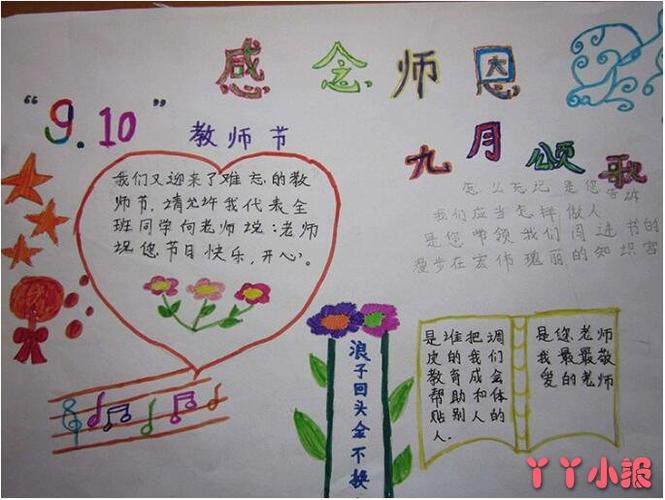 感念师恩
“9.10”教师节
我们又迎来了难忘的教
师节,请允许我代表全
班同学向老师说:老师
祝您节日快乐,开心。
九月颂歌
怎么忘记 是您告诉
我们应当怎样做人
是您带领我们闯进书的
漫步在宏伟瑰丽的知识宫
浪子回头金不换
是谁把调
皮的我们
教育成会
帮助和体
贴别人的
人.
是您老师
我最最敬
爱的老师
丫丫小报